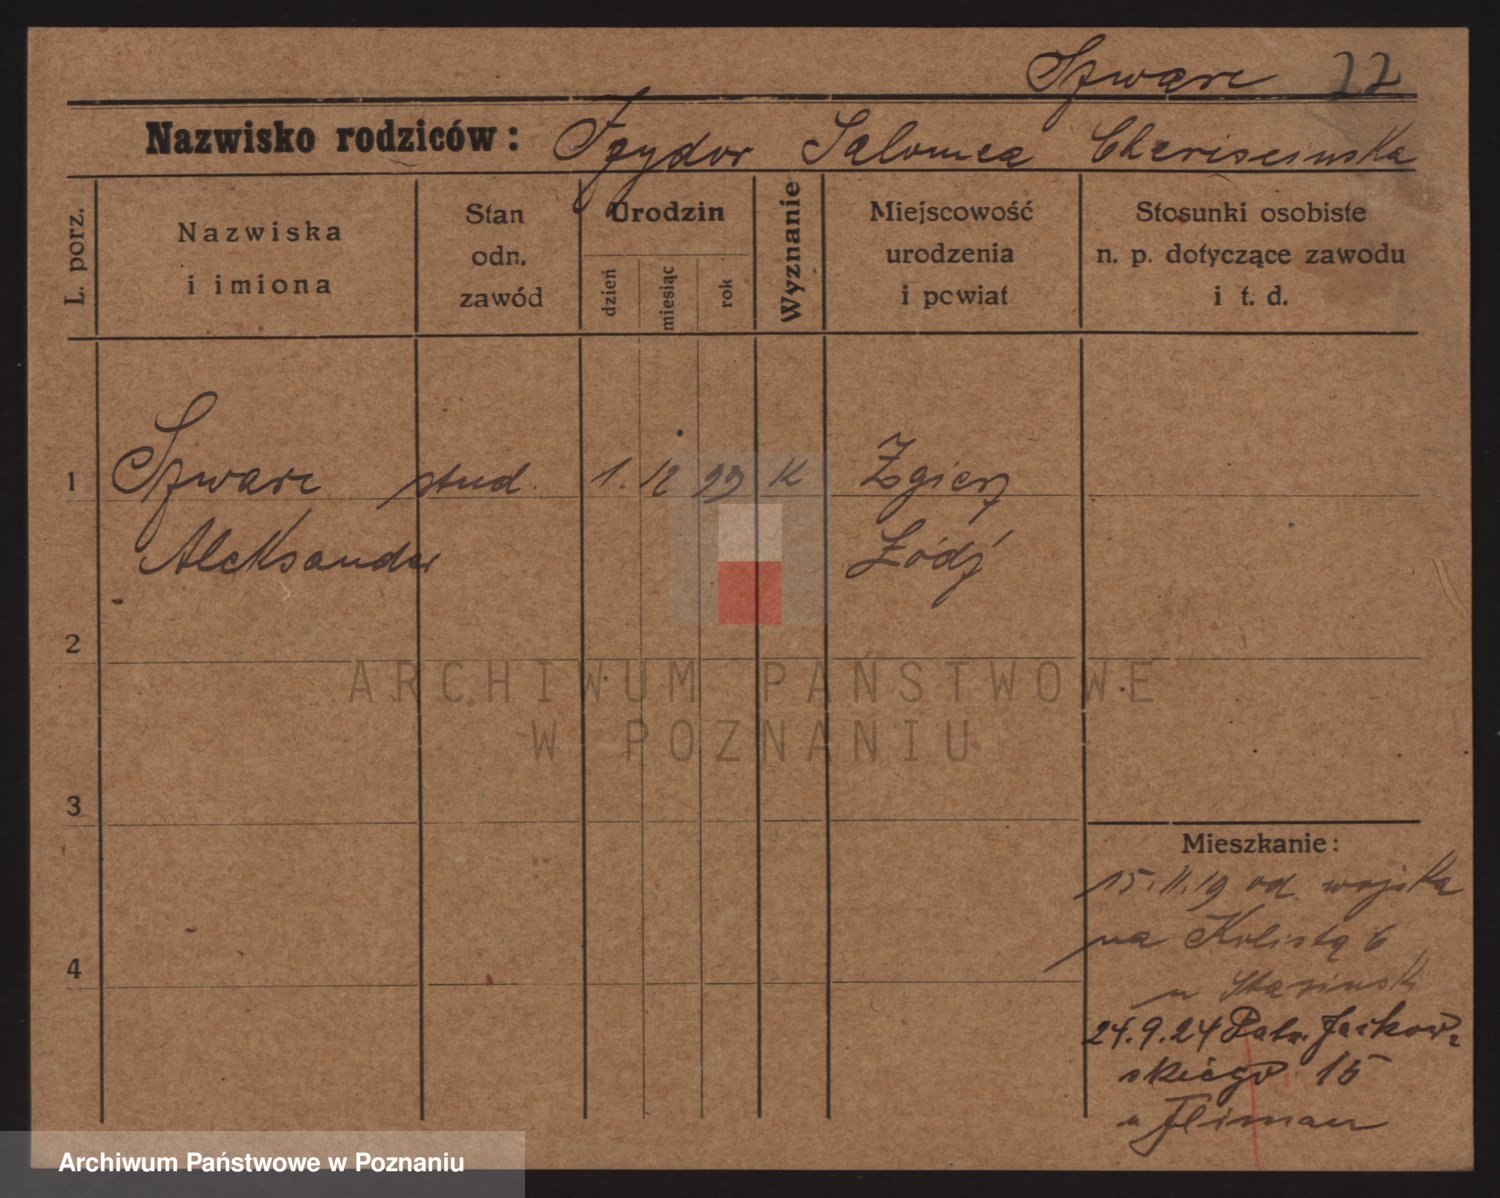 Szwarc 22
Nazwisko rodziców: Izydor Salomea
L. porz.
Nazwiska
i imiona
Stan
odn.
zawód
Urodzin
dzień
miesiąc
rok
Wyznanie
Miejscowość
urodzenia
i powiat
Stosunki osobiste
n. p. dotyczące zawodu
i t. d.
1 Szwarc stud. 1. 12 99 K Zgierz
Aleksander Łódź
2
3
4
ARCHIWUM PAŃSTWOWE
W POZNANIU
Mieszkanie:
15.11.19 od wojska
na Kolistą 6
u Stasinski
24.9.24 Patr. Jackow-
skiego 15
u Fliman
Archiwum Państwowe w Poznaniu